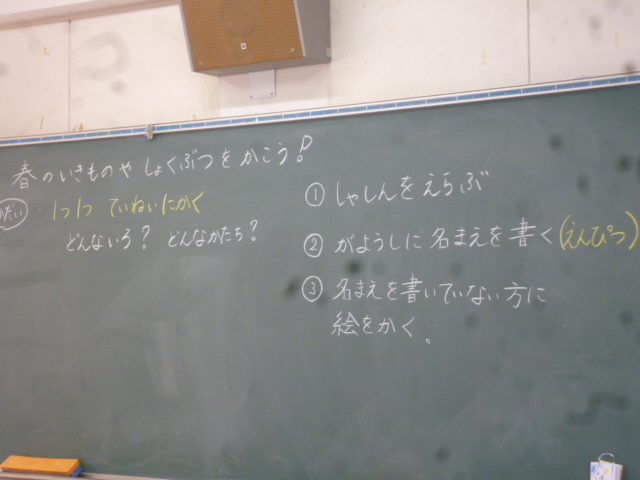 春のいきものや しょくぶつをかこう!
・1つ1つ ていねいにかく
どんないろ? どんなかたち?
① しゃしんをえらぶ
② がようしに名まえを書く(えんぴつ)
③ 名まえを書いていない方に
絵をかく。